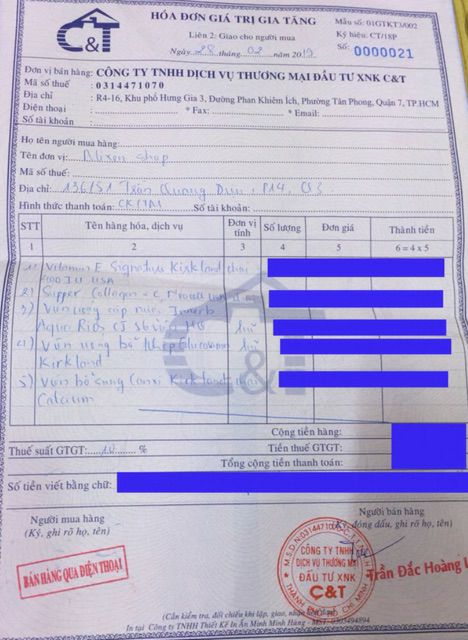 C&T
HÓA ĐƠN GIÁ TRỊ GIA TĂNG
Liên 2: Giao cho người mua
Ngày 28 tháng 02 năm 2019
Mẫu số: 01GTKT3/002
Ký hiệu: CT/18P
Số: 0000021
Đơn vị bán hàng: CÔNG TY TNHH DỊCH VỤ THƯƠNG MẠI ĐẦU TƯ XNK C&T
Mã số thuế : 0314471070
Địa chỉ : R4-16, Khu phố Hưng Gia 3, Đường Phan Khiêm Ích, Phường Tân Phong, Quận 7, TP.HCM
Điện thoại : * Fax: * Email:
Số tài khoản :
Họ tên người mua hàng:
Tên đơn vị: Alixen shop
Mã số thuế:
Địa chỉ: 136/51 Trần Quang Diệu, P14, Q3
Hình thức thanh toán: CK/TM Số tài khoản:
STT Tên hàng hóa, dịch vụ Đơn vị tính Số lượng Đơn giá Thành tiền
1 2 3 4 5 6 = 4 x 5
1) Vitamin E Signature Kirkland chai
400 IU USA
2) Supper Collagen + C
3) Viên uống cấp nước
Aqua Rich
4) Viên uống bổ khớp Glucosamin
Kirkland
5) Viên bổ sung Canxi Kirkland
Calcium
C&T
Cộng tiền hàng:
Thuế suất GTGT: 10 % Tiền thuế GTGT:
Tổng cộng tiền thanh toán:
Số tiền viết bằng chữ:
Người mua hàng
(Ký, ghi rõ họ, tên)
Người bán hàng
(Ký, đóng dấu, ghi rõ họ, tên)
BÁN HÀNG QUA ĐIỆN THOẠI
M.S.D.N:0314471070
CÔNG TY TNHH
DỊCH VỤ THƯƠNG MẠI
ĐẦU TƯ XNK
C&T
Trần Đắc Hoàng
(Cần kiểm tra, đối chiếu khi lập, giao, nhận hóa đơn)
In tại Công ty TNHH Thiết Kế In Ấn Minh Minh Hàng - MST: 0303494894